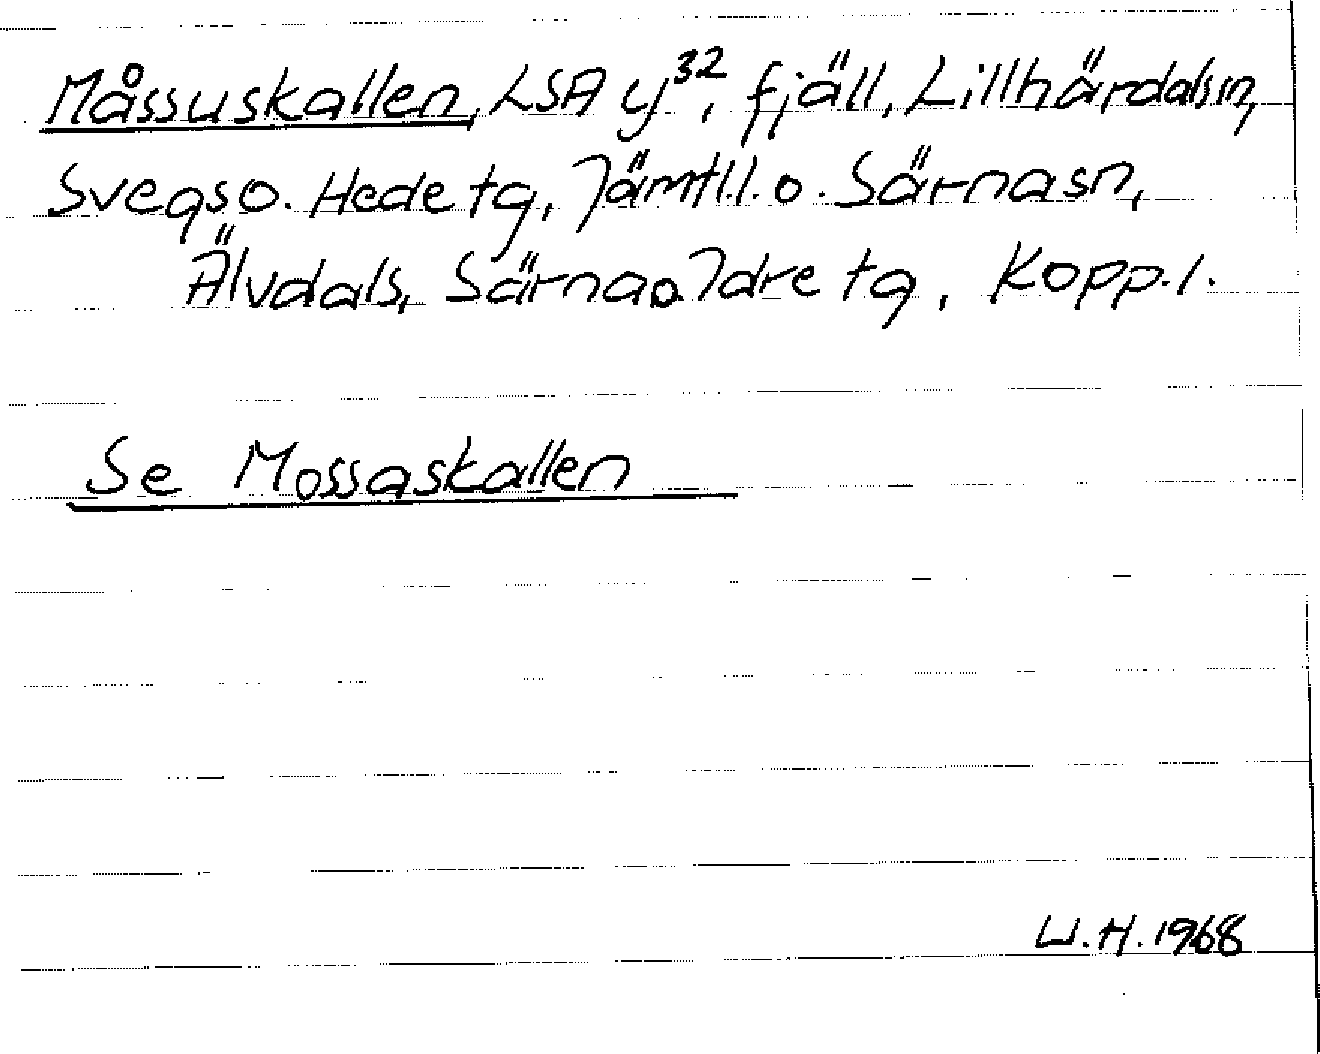 Måssuskallen, LSA y³², fjäll, Lillhärdals sn,
Svegs o. Hede tg, Jämtl. l. o. Särna sn,
Älvdals, Särna o. Idre tg, Kopp. l.
Se Mossaskallen
W.H. 1968